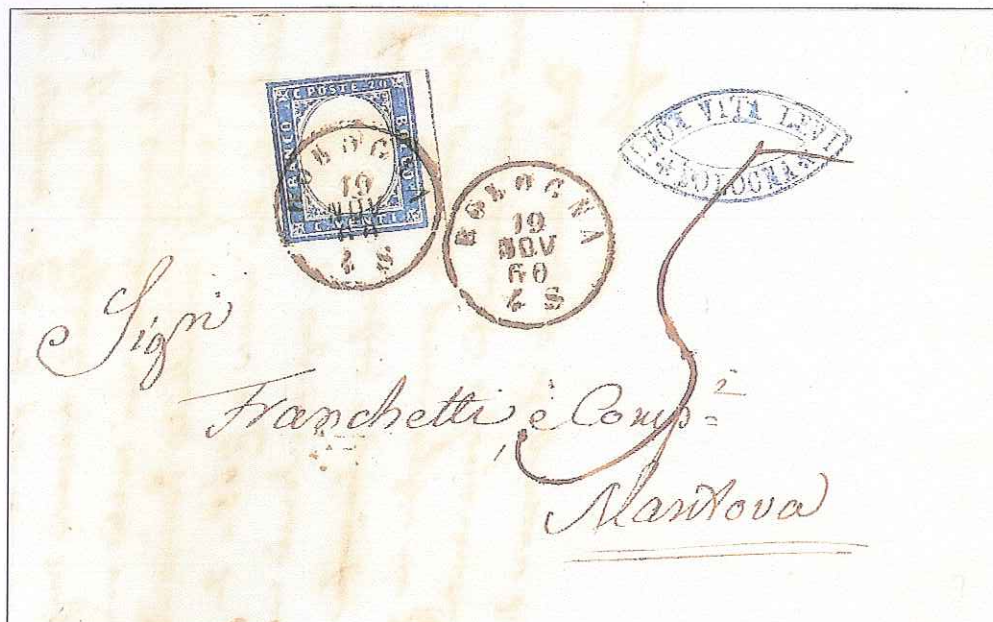 C. POSTE 20
FRANCO
BOLLO
C. VENTI
BOLOGNA
19
NOV
2 S
BOLOGNA
19
NOV
60
2 S
VITA LEVI
BOLOGNA
5
Sigri
Franchetti, e Comp.
Mantova